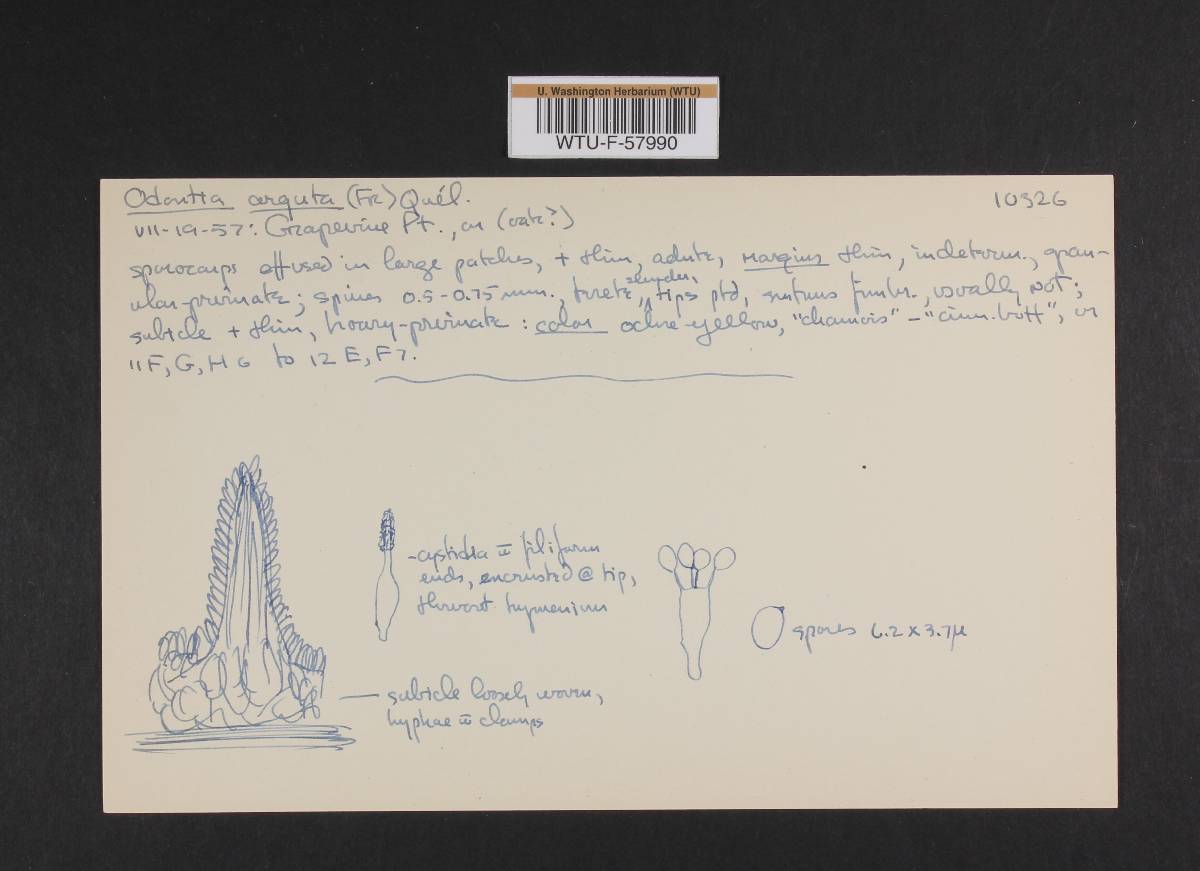 U. Washington Herbarium (WTU)
WTU-F-57990
Odontia arguta (Fr.) Quél.
10326
VII-19-57: Grapevine Pt., on (oak?)
sporocarps effused in large patches, + thin, adnate, margins thin, indeterm., gran-
ular-pruinate; spines 0.5-0.75 mm., terete, slender, tips ptd, fimbr., usually not;
subicle + thin, hoary-pruinate: color ochre-yellow, "chamois" - "cinn. buff", or
11 F, G, H 6 to 12 E, F 7.
-cystidia c̄ filiform
ends, encrusted @ tip,
thruout hymenium
spores 6.2 x 3.7 µ
subicle loosely woven,
hyphae c̄ clamps